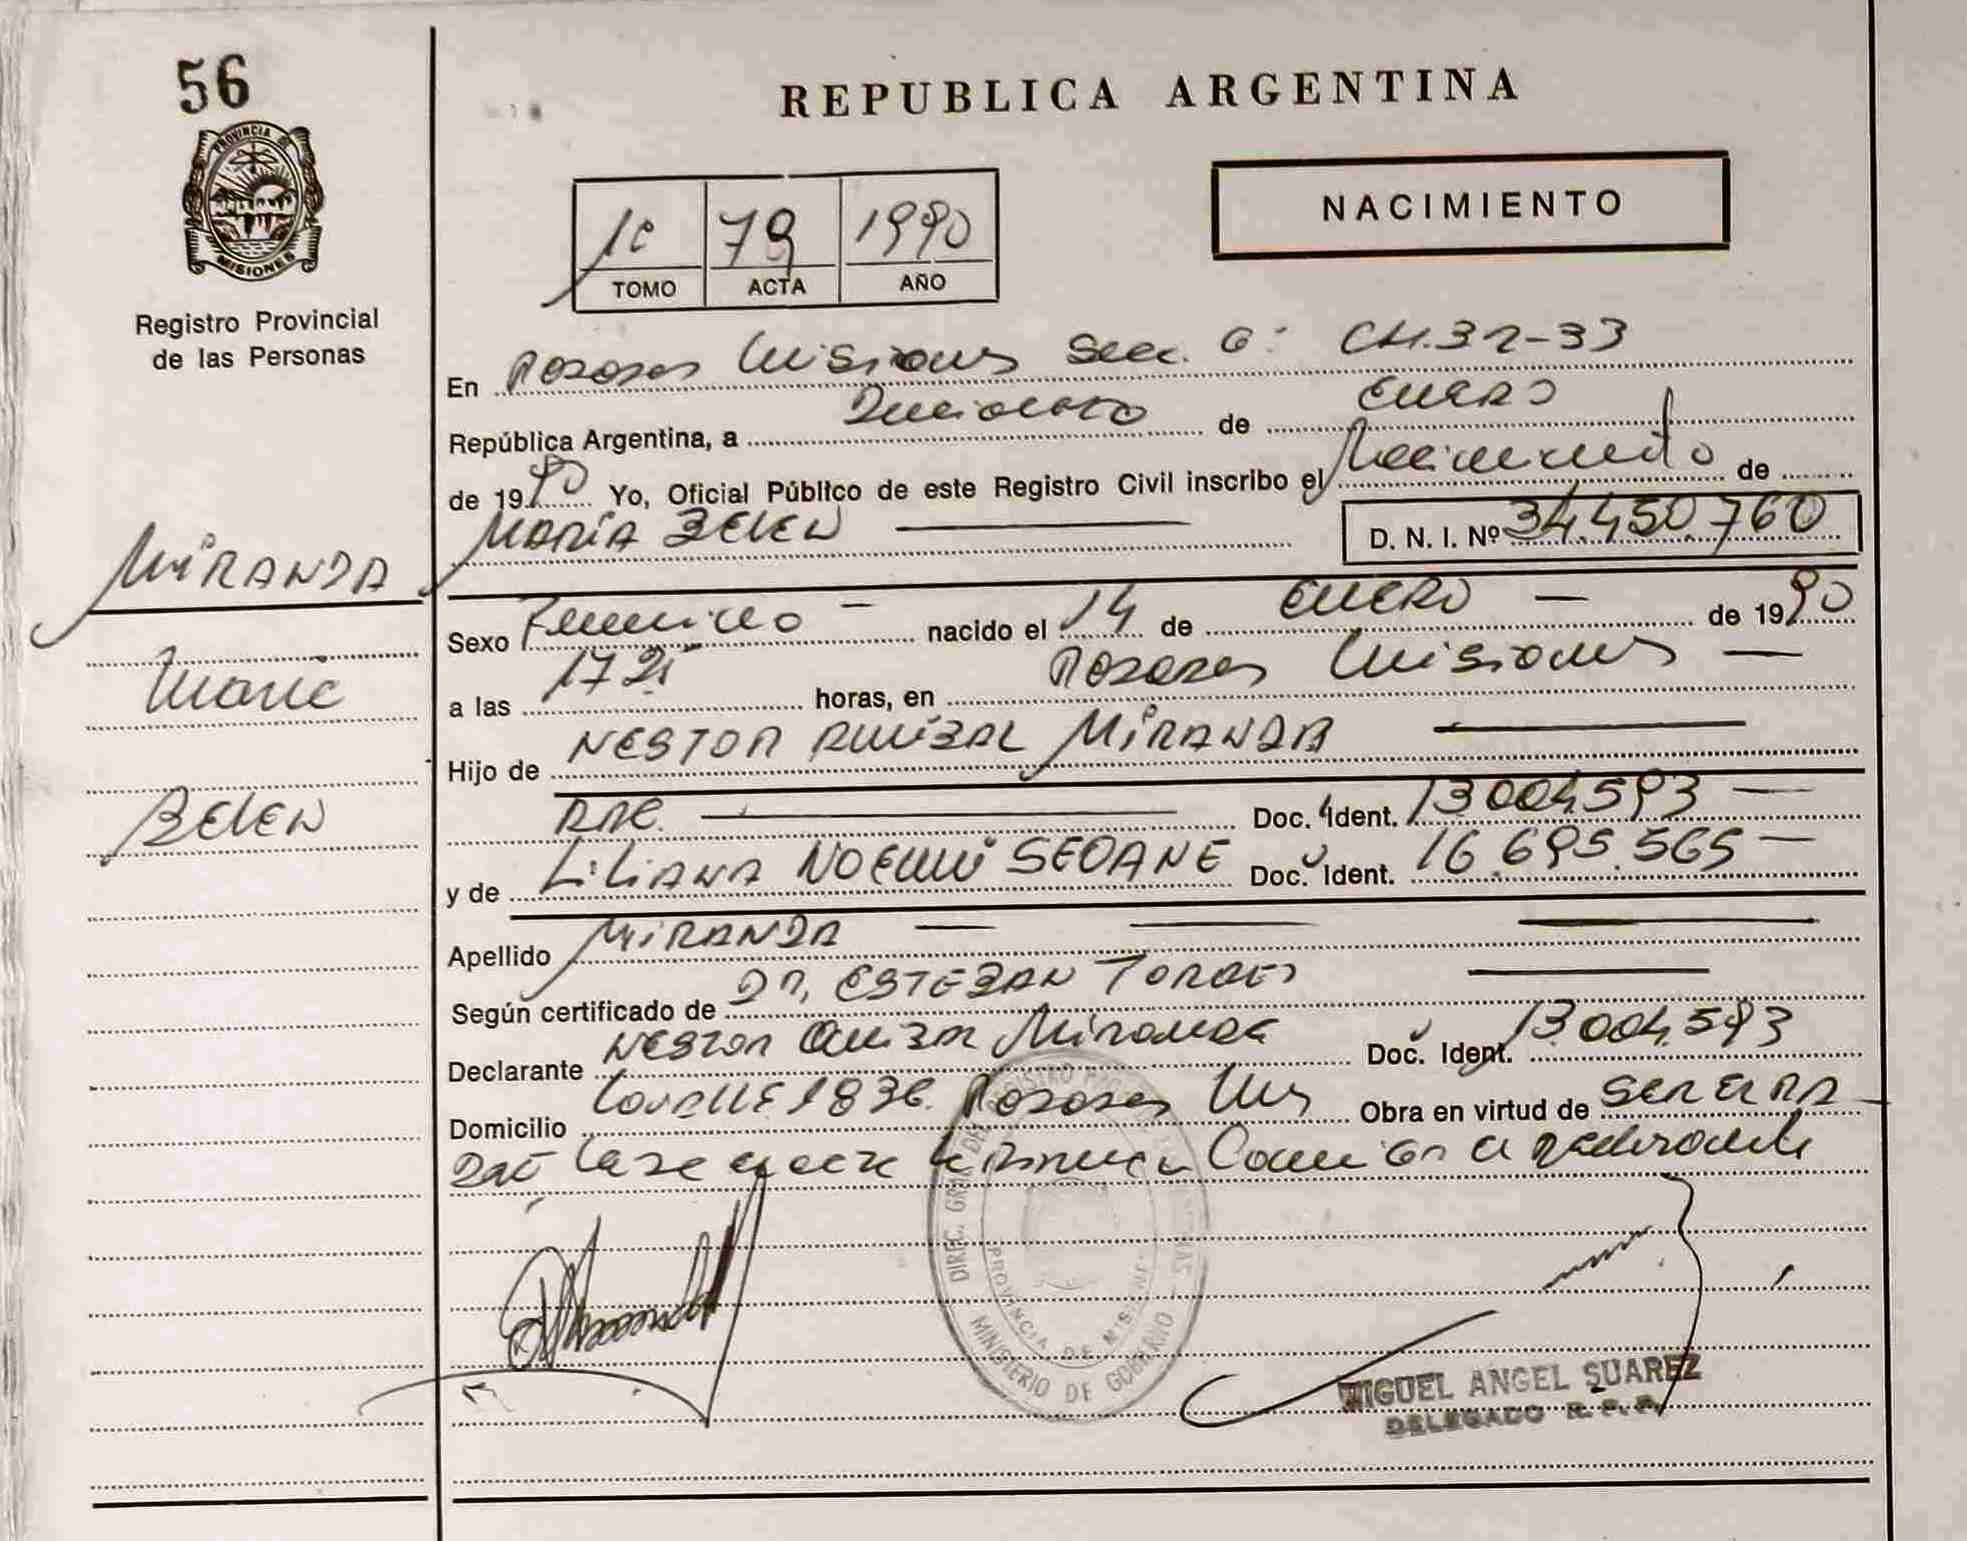 56
PROVINCIA DE
MISIONES
Registro Provincial
de las Personas
REPUBLICA ARGENTINA
NACIMIENTO
1º 79 1990
TOMO ACTA AÑO
En Posadas Misiones Secc. 6ª CH.32-33
República Argentina, a Dieciocho de ENERO
de 1990 Yo, Oficial Público de este Registro Civil inscribo el Nacimiento de
MARÍA BELEN D. N. I. Nº 34.450.760
MIRANDA
Maria
BELEN
Sexo Femenino — nacido el 14 de ENERO — de 1990
a las 17 25 horas, en Posadas Misiones —
Hijo de NESTOR ANIBAL MIRANDA
ARG. Doc. Ident. 13004.593 —
y de LiLiANA NOEMÍ SEOANE Doc. Ident. 16.695.565 —
Apellido MIRANDA
Según certificado de DR. ESTEBAN TORRES
Declarante NESTOR ANIBAL MIRANDA Doc. Ident. 13.004.593
Domicilio 1836 Posadas Mns Obra en virtud de SER EL PA
DRE el declarante
DIREC. GRAL DEL REGISTRO PROV. DE LAS PERSONAS
PROVINCIA DE MISIONES
MINISTERIO DE GOBIERNO
MIGUEL ANGEL SUAREZ
DELEGADO R. P. P.